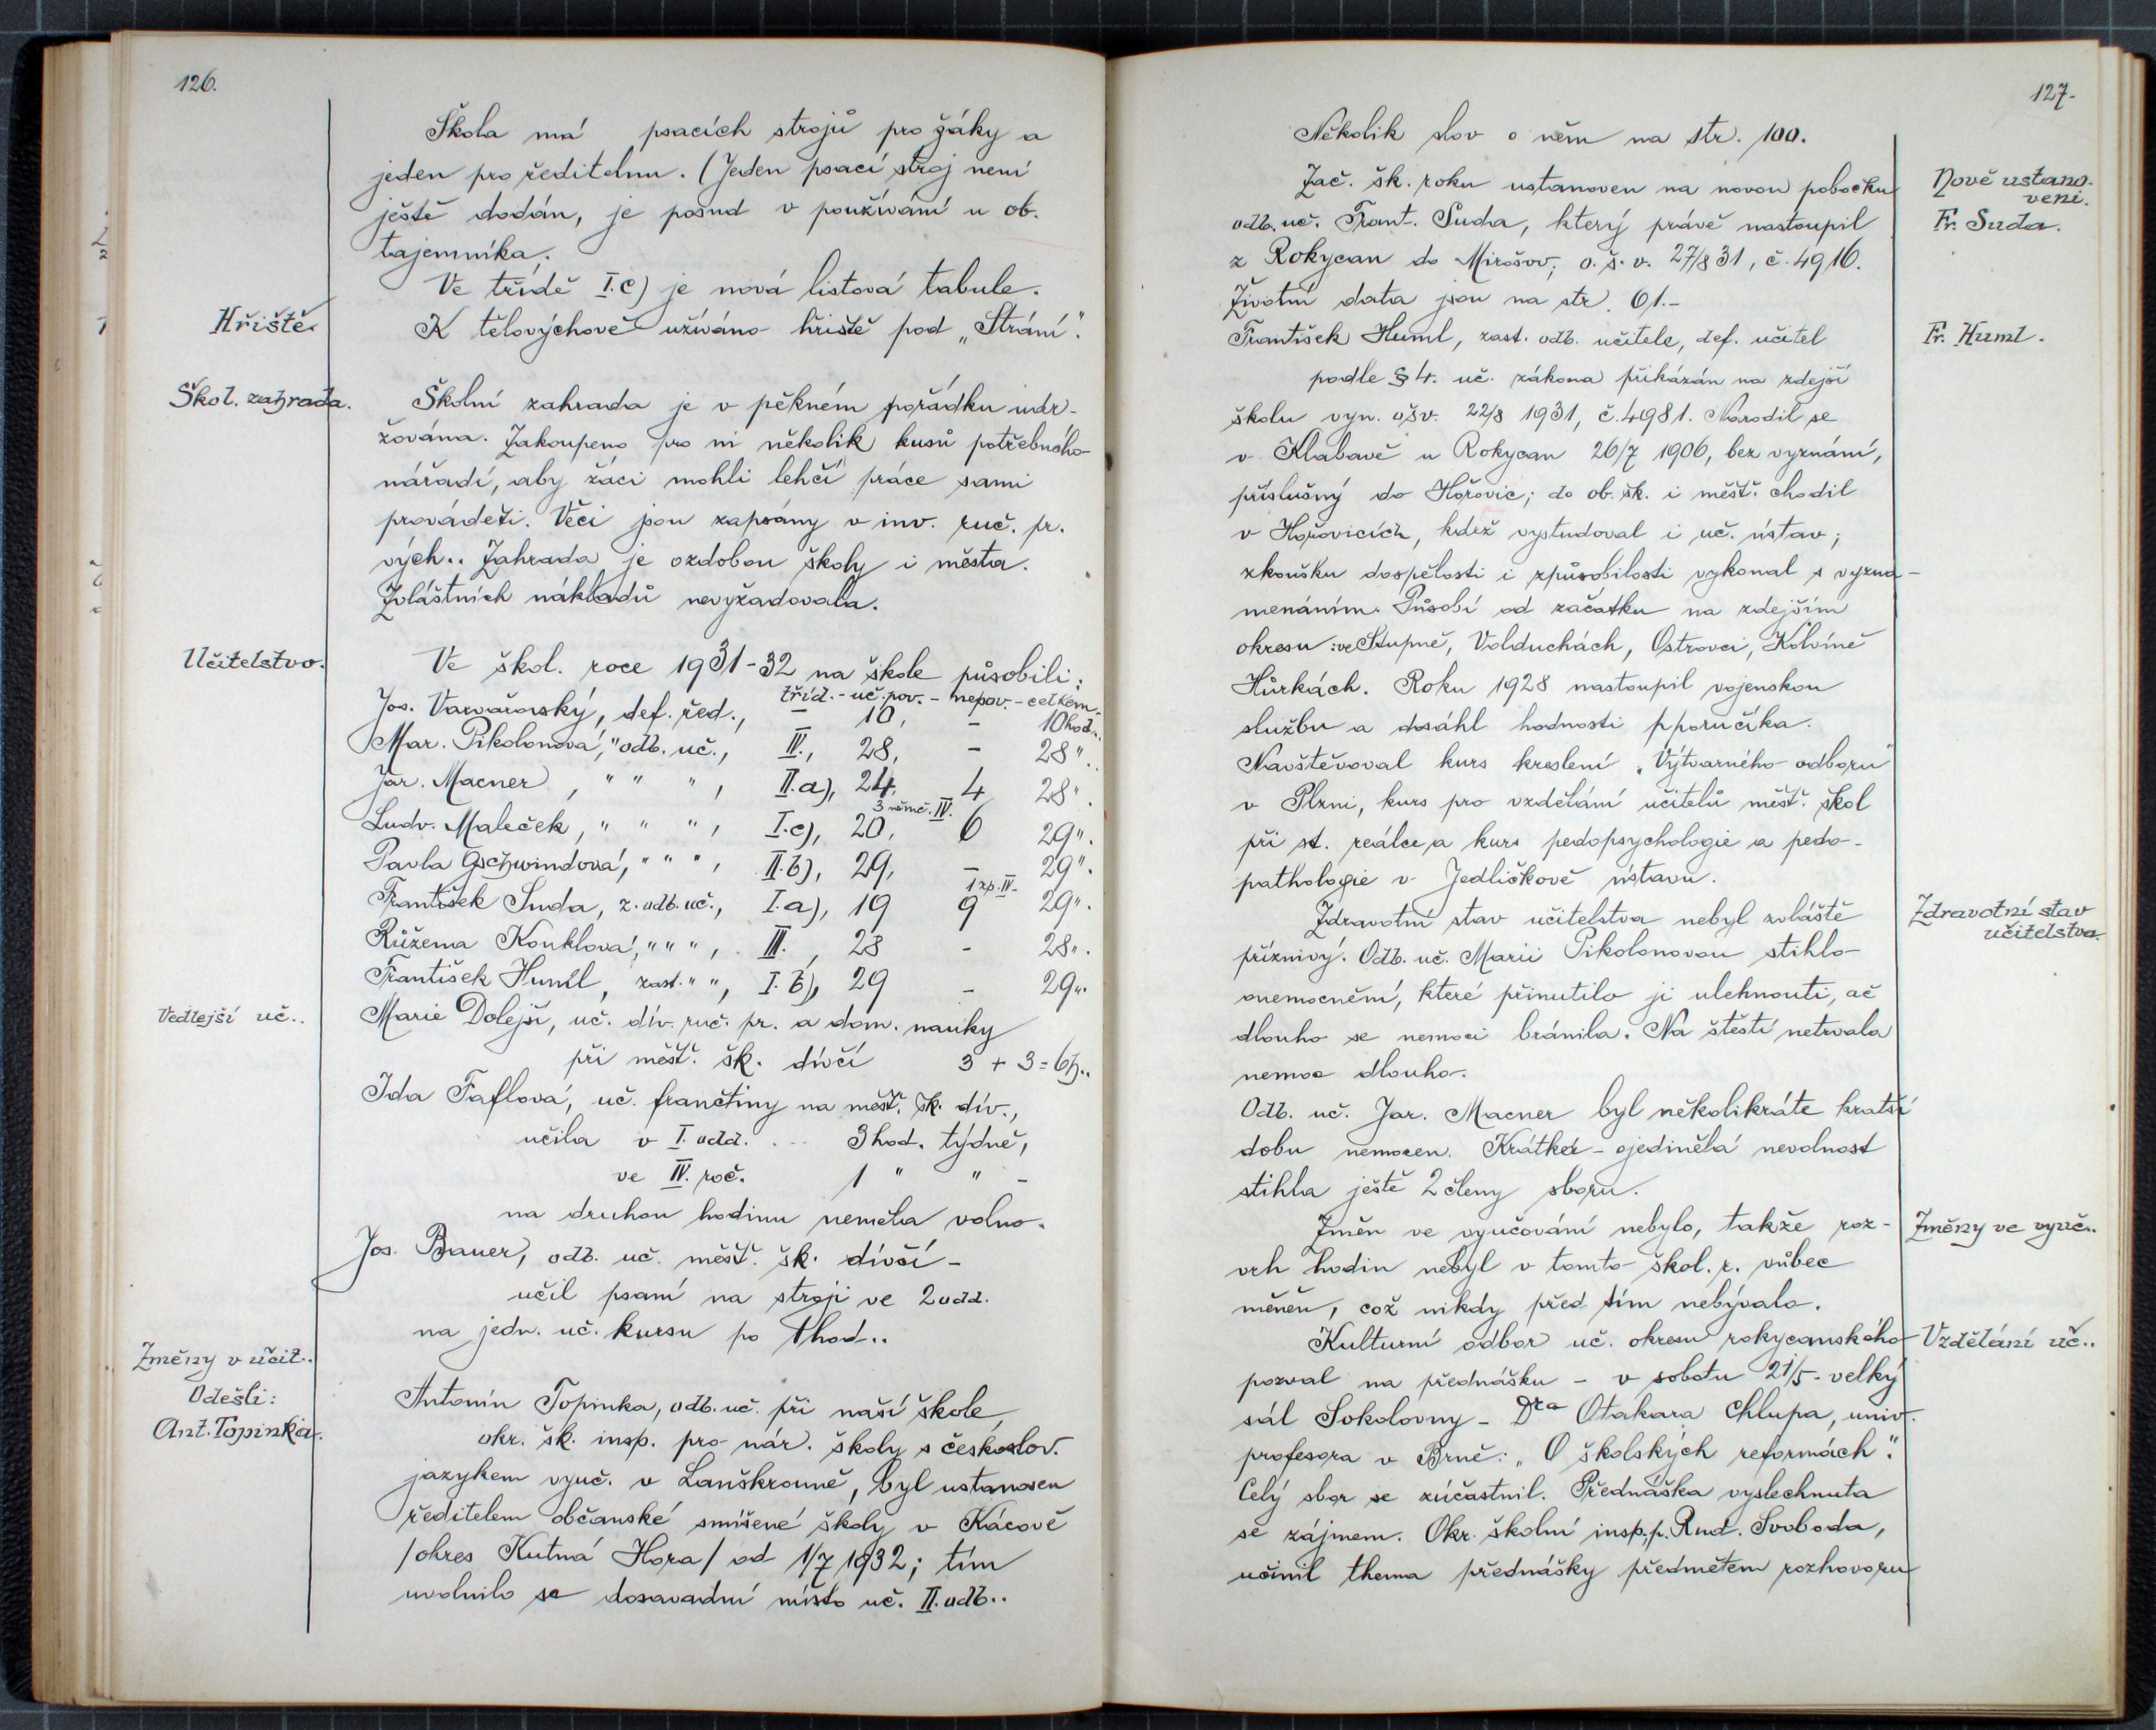 126.
Škola má psacích strojů pro žáky a
jeden pro ředitelnu. (Jeden psací stroj není
ještě dodán, je posud v používání u ob.
tajemníka.
Ve třídě I.c) je nová listová tabule.
Hřiště.
K tělovýchově užíváno hřiště pod „Strání“.
Škol. zahrada.
Školní zahrada je v pěkném pořádku udr-
žována. Zakoupeno pro ni několik kusů potřebného
nářadí, aby žáci mohli lehčí práce sami
prováděti. Věci jsou zapsány v inv. ruč. pr.
vých.. Zahrada je ozdobou školy i města.
Zvláštních nákladů nevyžadovala.
Učitelstvo.
Ve škol. roce 1931-32 na škole působili:
tříd. - uč. pov. - nepov. - celkem.
Jos. Varvařovský, def. řed., - 10, - 10 hod..
Mar. Pikolonová, " odb. uč., IV., 28, - 28 ".
Jar. Macner, " " ", II.a), 24, 4 28 ".
3 němč. IV.
Ludv. Maleček, " " ", I.c), 20, 6 29 ".
Pavla Gschwindová, " " ", II.b), 29, - 29 ".
1 zp. IV.
František Suda, z. odb. uč., I.a), 19 9 29 ".
Růžena Konklová, " " ", III., 28 - 28 ".
František Huml, zast. " ", I.b), 29 - 29 ".
Vedlejší uč..
Marie Dolejší, uč. dív. ruč. pr. a dom. nauky
při měšť. šk. dívčí 3 + 3 = 6h..
Ida Faflová, uč. frančtiny na měšť. šk. dív.,
učila v I. odd. ... 3 hod. týdně,
ve IV. roč. 1 " " -
na druhou hodinu neměla volno.
Jos. Bauer, odb. uč. měšť. šk. dívčí -
učil psaní na stroji ve 2 odd.
na jedn. uč. kursu po 1 hod..
Změny v učit..
Odešli:
Ant. Topinka.
Antonín Topinka, odb. uč. při naší škole,
okr. šk. insp. pro nár. školy s českoslov.
jazykem vyuč. v Lanškrouně, byl ustanoven
ředitelem občanské smíšené školy v Kácově
/okres Kutná Hora/ od 1/7 1932; tím
uvolnilo se dosavadní místo uč. II. odb..
127.
Několik slov o něm na str. 100.
Nově ustano-
veni.
Fr. Suda.
Zač. šk. roku ustanoven na novou pobočku
odb. uč. Frant. Suda, který právě nastoupil
z Rokycan do Mirošov; o. š. v. 27/8 31, č. 4916.
Životní data jsou na str. 61.-
Fr. Huml.
František Huml, zast. odb. učitele, def. učitel
podle § 4. uč. zákona přikázán na zdejší
školu vyn. ošv. 22/8 1931, č. 4981. Narodil se
v Klabavě u Rokycan 26/7 1906, bez vyznání,
příslušný do Hořovic; do ob. šk. i měšť. chodil
v Hořovicích, kdež vystudoval i uč. ústav;
zkoušku dospělosti i způsobilosti vykonal s vyzna-
menáním. Působí od začátku na zdejším
okresu: ve Stupně, Volduchách, Ostrovci, Kolvíně
Hůrkách. Roku 1928 nastoupil vojenskou
službu a dosáhl hodnosti pporučíka.
Navštěvoval kurs kreslení „Výtvarného odboru“
v Plzni, kurs pro vzdělání učitelů měšť. škol
při st. reálce a kurs pedopsychologie a pedo-
pathologie v Jedličkově ústavu.
Zdravotní stav
učitelstva.
Zdravotní stav učitelstva nebyl zvláště
příznivý. Odb. uč. Marii Pikolonovou stihlo
onemocnění, které přinutilo ji ulehnouti, ač
dlouho se nemoci bránila. Na štěstí netrvala
nemoc dlouho.
Odb. uč. Jar. Macner byl několikráte kratší
dobu nemocen. Krátká - ojedinělá nevolnost
stihla ještě 2 členy sboru.
Změny ve vyuč..
Změn ve vyučování nebylo, takže roz-
vrh hodin nebyl v tomto škol. r. vůbec
měněn, což nikdy před tím nebývalo.
Vzdělání uč..
Kulturní odbor uč. okresu rokycanského
pozval na přednášku - v sobotu 21/5 - velký
sál Sokolovny - Dra Otakara Chlupa, univ.
profesora v Brně: „O školských reformách“.
Celý sbor se zúčastnil. Přednáška vyslechnuta
se zájmem. Okr. školní insp. p. Rud. Svoboda,
učinil thema přednášky předmětem rozhovoru